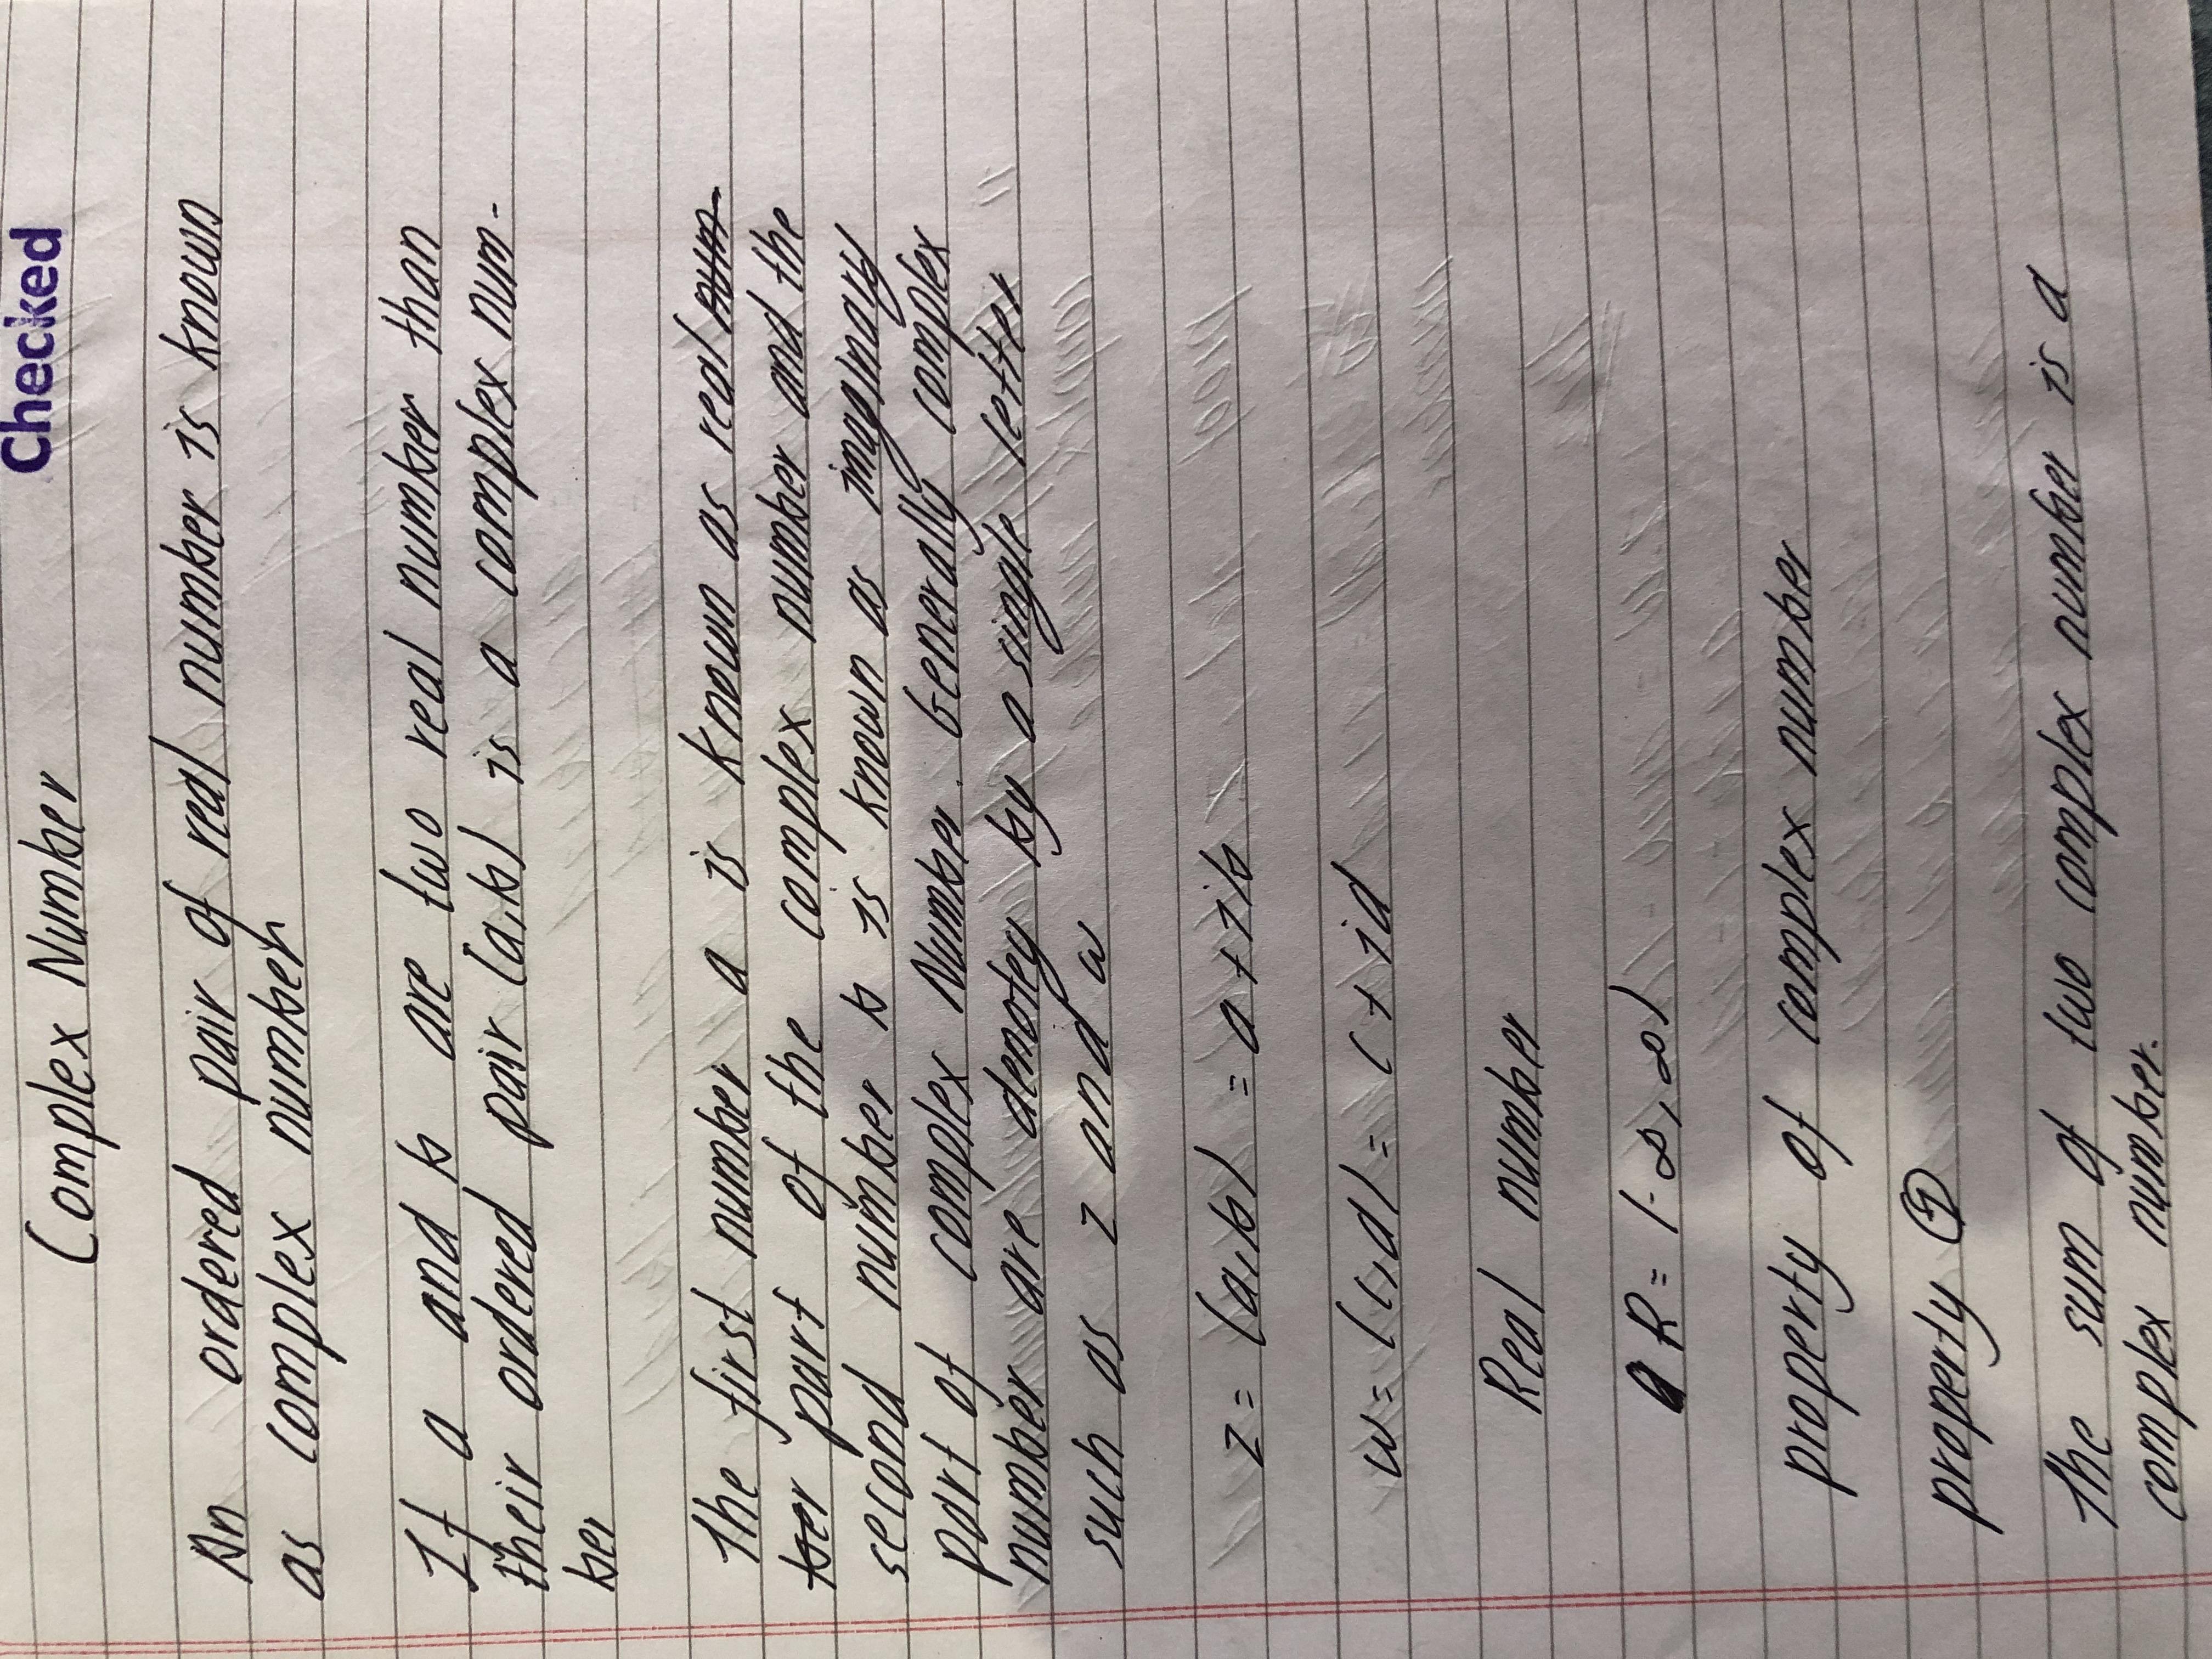 Checked
Complex Number
An ordered pair of real number is known
as complex number
If a and b are two real number than
their ordered pair (a,b) is a complex num-
ber
The first number a is known as real num
ber part of the complex number and the
second number b is known as imaginary
part of complex Number. Generally complex
number are denotey by a single letter
such as z and w
z = (a,b) = a + ib
w = (c,d) = c + id
Real number
R = (-∞, ∞)
property of complex number
property ①
The sum of two complex number is a
complex number.